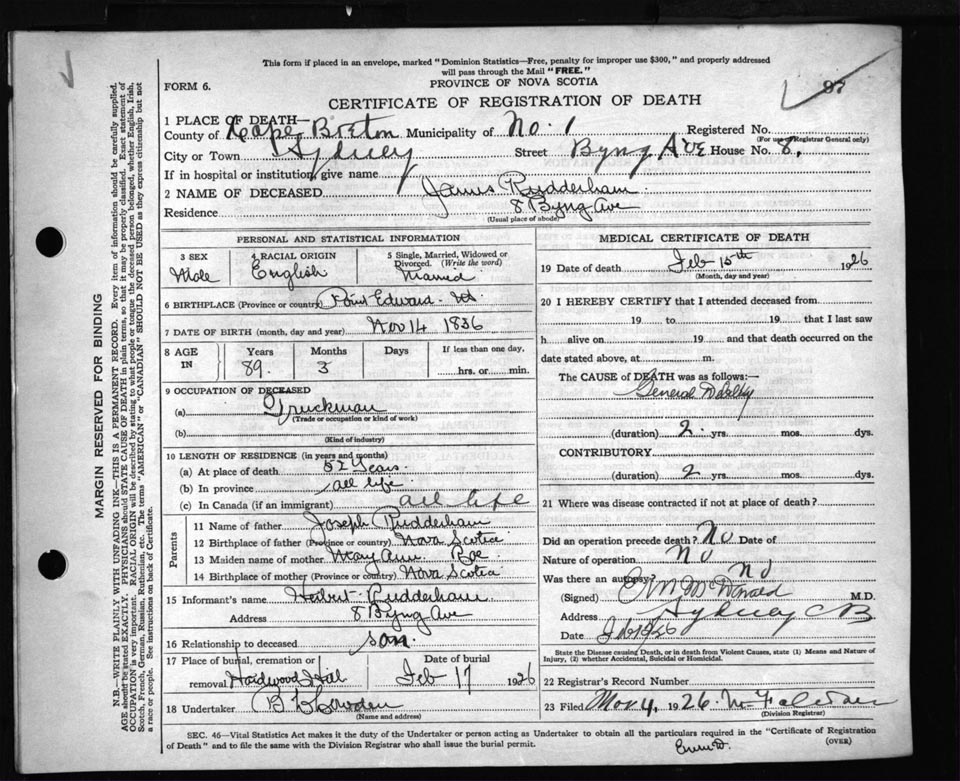 This form if placed in an envelope, marked "Dominion Statistics—Free, penalty for improper use $300," and properly addressed
will pass through the Mail "FREE."
FORM 6.
PROVINCE OF NOVA SCOTIA
97
CERTIFICATE OF REGISTRATION OF DEATH
1 PLACE OF DEATH—
County of Cape Breton Municipality of No. 1 Registered No.
(For use of Registrar General only)
City or Town Sydney Street Byng Ave House No. 8.
If in hospital or institution give name
2 NAME OF DECEASED James Rudderham
Residence 8 Byng Ave
(Usual place of abode)
PERSONAL AND STATISTICAL INFORMATION
3 SEX 4 RACIAL ORIGIN 5 Single, Married, Widowed or
Divorced. (Write the word)
Male English Married
6 BIRTHPLACE (Province or country) Point Edward N.S.
7 DATE OF BIRTH (month, day and year) Nov 14 1836
8 AGE IN Years Months Days If less than one day,
89. 3 hrs. or min.
9 OCCUPATION OF DECEASED
(a) Truckman
(Trade or occupation or kind of work)
(b)
(Kind of industry)
10 LENGTH OF RESIDENCE (in years and months)
(a) At place of death 52 Years.
(b) In province all life
(c) In Canada (if an immigrant) all life
Parents
11 Name of father Joseph Rudderham
12 Birthplace of father (Province or country) Nova Scotia
13 Maiden name of mother Mary Ann
14 Birthplace of mother (Province or country) Nova Scotia
15 Informant's name Herbert Rudderham
Address 8 Byng Ave
16 Relationship to deceased son
17 Place of burial, cremation or Date of burial
removal Hardwood Hill Feb 17 1926
18 Undertaker
(Name and address)
MEDICAL CERTIFICATE OF DEATH
19 Date of death Feb 15th 1926
(Month, day and year)
20 I HEREBY CERTIFY that I attended deceased from
19 to 19 that I last saw
h alive on 19 and that death occurred on the
date stated above, at m.
The CAUSE of DEATH was as follows:—
General Debility
(duration) 2 yrs. mos. dys.
CONTRIBUTORY
(duration) 2 yrs. mos. dys.
21 Where was disease contracted if not at place of death?
Did an operation precede death? No Date of
Nature of operation No
Was there an autopsy? No
(Signed) McDonald M.D.
Address Sydney CB
Date
State the Disease causing Death, or in death from Violent Causes, state (1) Means and Nature of
Injury, (2) whether Accidental, Suicidal or Homicidal.
22 Registrar's Record Number
23 Filed Mar 4, 1926.
(Division Registrar)
SEC. 46—Vital Statistics Act makes it the duty of the Undertaker or person acting as Undertaker to obtain all the particulars required in the "Certificate of Registration
of Death" and to file the same with the Division Registrar who shall issue the burial permit.
(OVER)
MARGIN RESERVED FOR BINDING
N.B.—WRITE PLAINLY WITH UNFADING INK—THIS IS A PERMANENT RECORD. Every item of information should be carefully supplied.
AGE should be stated EXACTLY. PHYSICIANS should STATE CAUSE OF DEATH in plain terms, so that it may be properly classified. Exact statement of
OCCUPATION is very important. RACIAL ORIGIN will be described by stating to what people or tongue the deceased person belonged, whether English, Irish,
Scotch, French, German, Russian, Ruthenian, etc. The terms "AMERICAN" or "CANADIAN" SHOULD NOT BE USED as they express citizenship but not
a race or people. See instructions on back of Certificate.